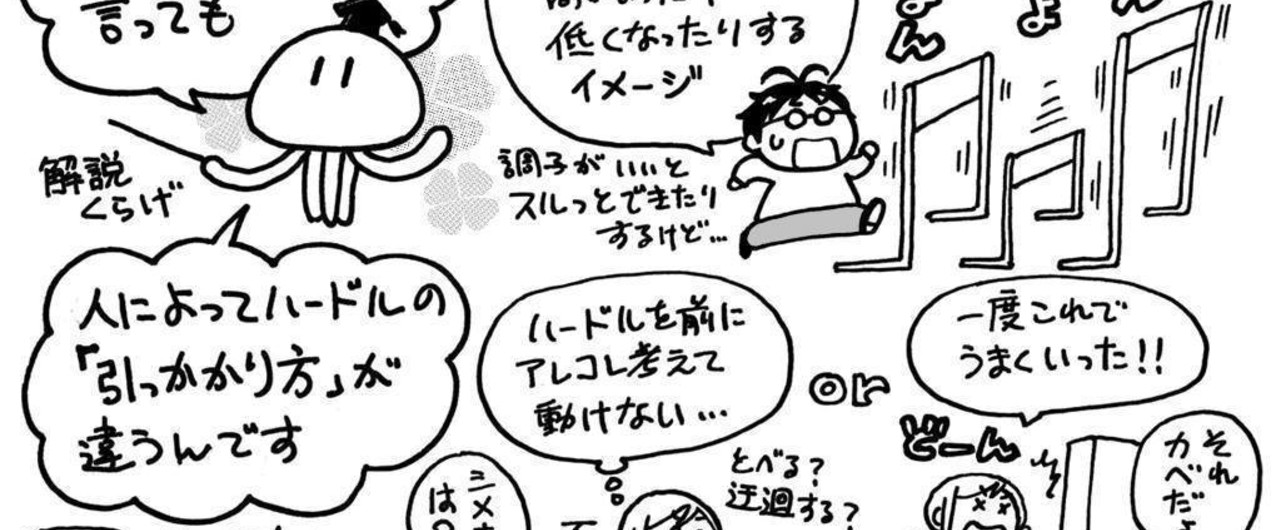 言っても
低くなったりする
イメージ
解説
くらげ
調子がいいと
スルっとできたり
するけど…
人によってハードルの
「引っかかり方」が
違うんです
ハードルを前に
アレコレ考えて
動けない…
or
一度これで
うまくいった!!
どーん
とべる?
迂廻する?
それ
カベだ